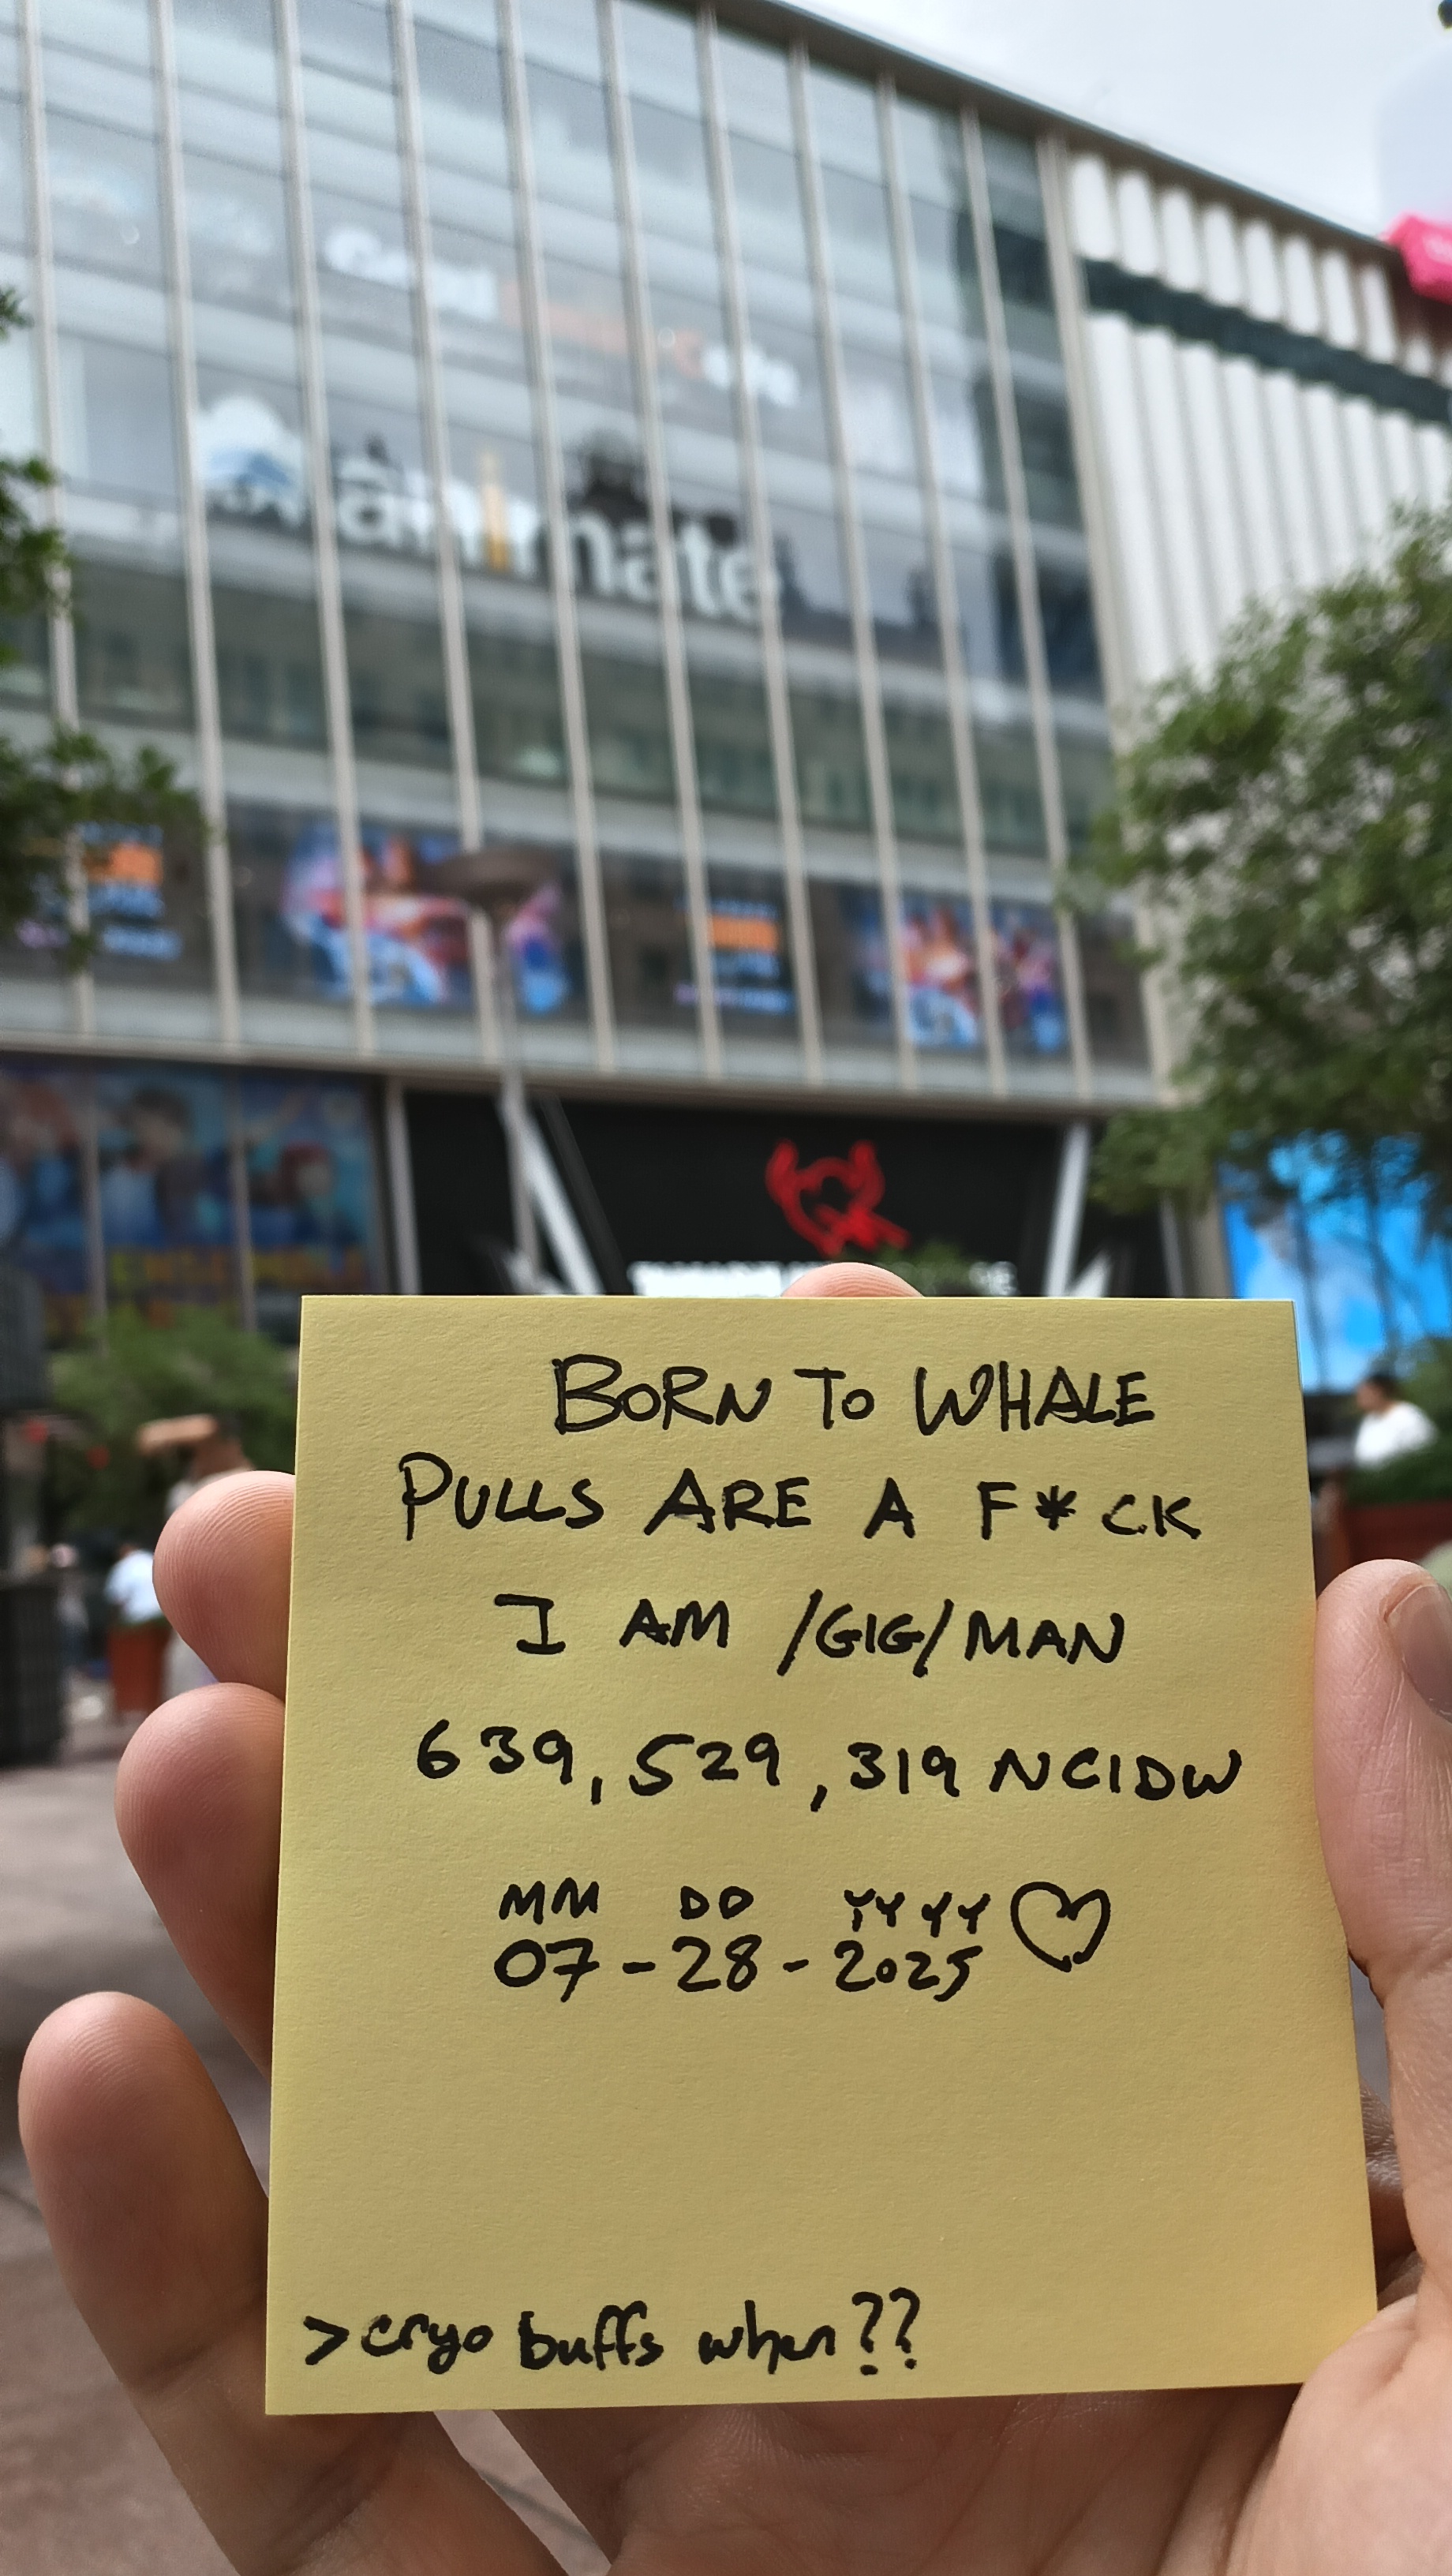 animate
BORN TO WHALE
PULLS ARE A F*CK
I AM /GIG/ MAN
639,529,319 NCIDW
MM DD YYYY
07-28-2025 ♡
>cryo buffs when??